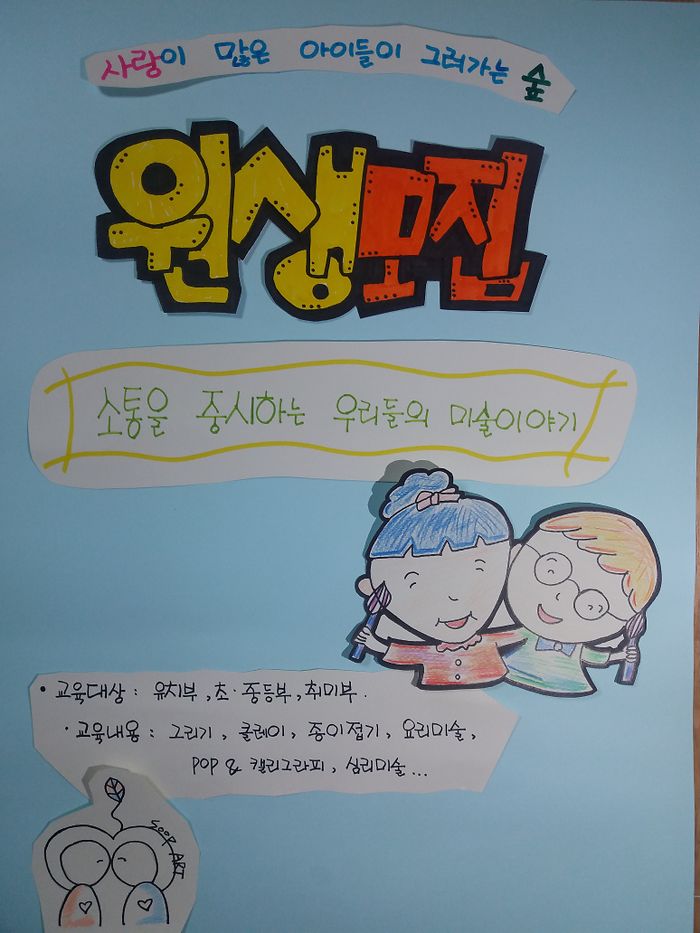 사랑이 많은 아이들이 그려가는 숲
원생모집
소통을 중시하는 우리들의 미술이야기
• 교육대상 : 유치부, 초·중등부, 취미부.
· 교육내용 : 그리기, 클레이, 종이접기, 요리미술,
POP & 캘리그라피, 심리미술...
SOOP ART